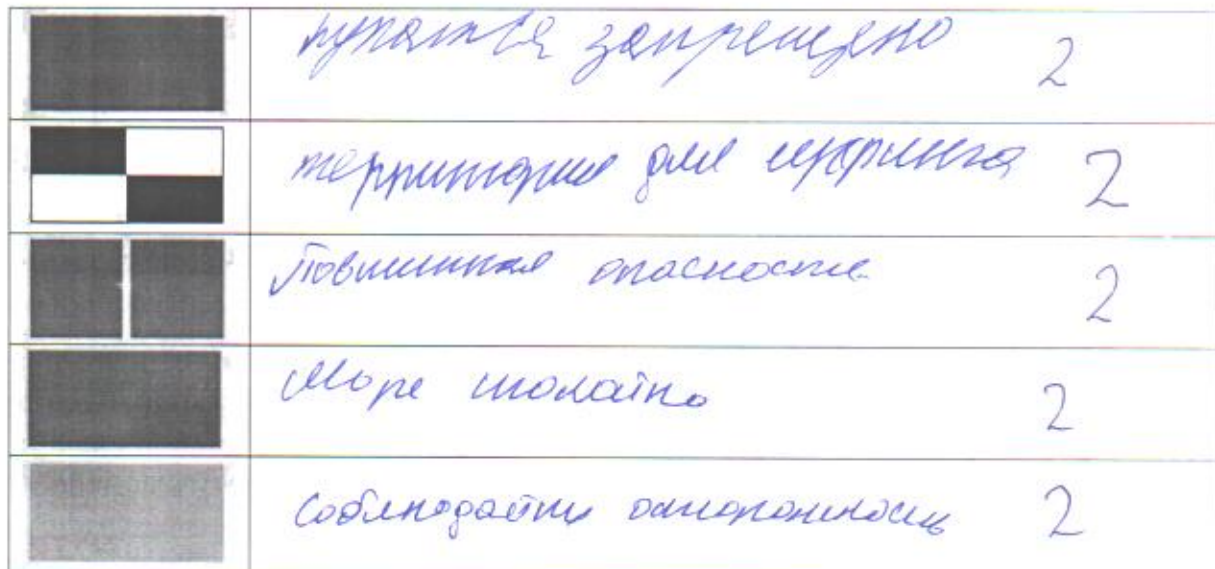 купаться запрещено 2
территория для серфинга 2
Повышенная опасность 2
Море спокойно 2
Соблюдайте осторожность 2